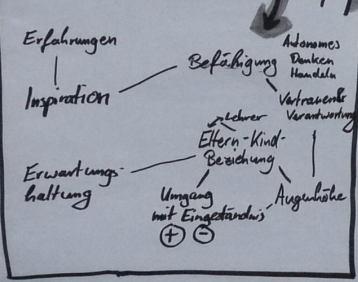 Erfahrungen
Inspiration
Befähigung
Autonomes
Denken
Handeln
Vertrauen &
Verantwortung
Lehrer
Eltern-Kind-
Beziehung
Erwartungs-
haltung
Umgang
mit Eingeständnis
+ -
Augenhöhe